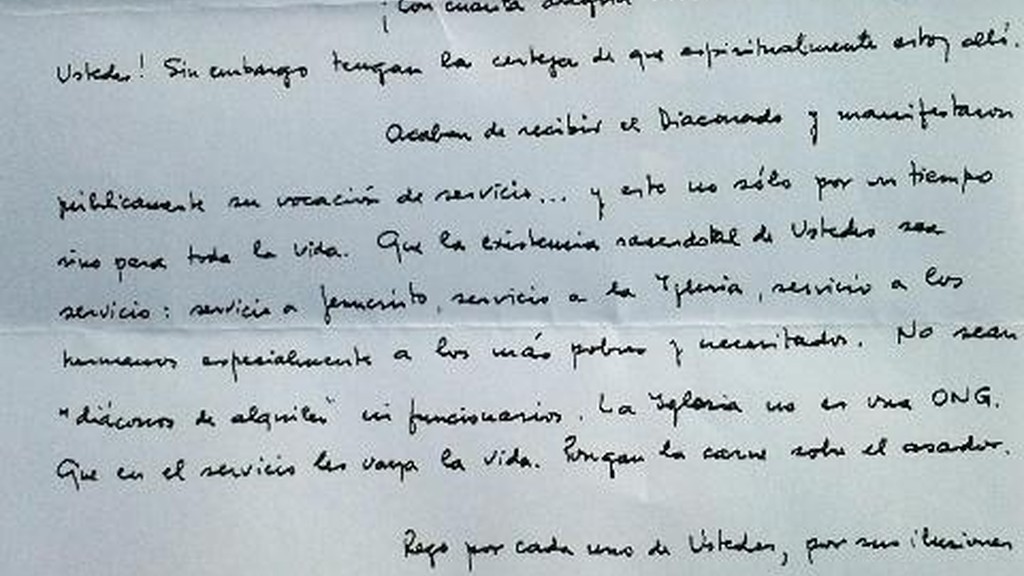 ¡Con cuánta alegría
Ustedes! Sin embargo tengan la certeza de que espiritualmente estoy allí.
Acaban de recibir el Diaconado y manifestaron
públicamente su vocación de servicio... y esto no sólo por un tiempo
sino para toda la vida. Que la existencia sacerdotal de Ustedes sea
servicio: servicio a Jesucristo, servicio a la Iglesia, servicio a los
hermanos especialmente a los más pobres y necesitados. No sean
"diáconos de alquiler" ni funcionarios. La Iglesia no es una ONG.
Que en el servicio les vaya la vida. Pongan la carne sobre el asador.
Rego por cada uno de Ustedes, por sus ilusiones